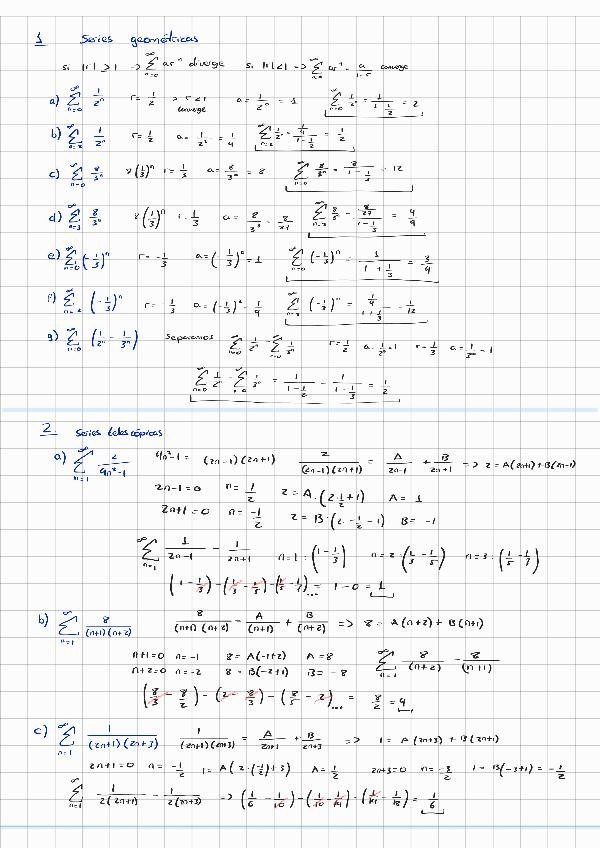 1 Series geométricas
si |r| ≥ 1 -> ∞∑n=0 ar^n diverge si |r| < 1 -> ∞∑n=0 ar^n = a/(1-r) converge
a) ∞∑n=0 1/2^n r = 1/2 -> r < 1 converge a = 1/2^0 = 1 ∞∑n=0 1/2^n = 1/(1-1/2) = 2
b) ∞∑n=2 1/2^n r = 1/2 a = 1/2^2 = 1/4 ∞∑n=2 1/2^n = (1/4)/(1-1/2) = 1/2
c) ∞∑n=0 8/3^n 8(1/3)^n r = 1/3 a = 8/3^0 = 8 ∞∑n=0 8/3^n = 8/(1-1/3) = 12
d) ∞∑n=3 8/3^n 8(1/3)^n r = 1/3 a = 8/3^3 = 8/27 ∞∑n=3 = (8/27)/(1-1/3) = 4/9
e) ∞∑n=0 (-1/3)^n r = -1/3 a = (-1/3)^0 = 1 ∞∑n=0 (-1/3)^n = 1/(1+1/3) = 3/4
f) ∞∑n=2 (-1/3)^n r = -1/3 a = (-1/3)^2 = 1/9 ∞∑n=2 (-1/3)^n = 1/(1+1/3) = 1/12
g) ∞∑n=0 (1/2^n - 1/3^n) Separamos ∞∑n=0 1/2^n - ∞∑n=0 1/3^n r = 1/2 a = 1/2^0 = 1 r = 1/3 a = 1/3^0 = 1
∞∑n=0 1/2^n - ∞∑n=0 1/3^n = 1/(1-1/2) - 1/(1-1/3) = 1/2
2. Series telescópicas
a) ∞∑n=1 2/(4n^2-1) 4n^2-1 = (2n-1)(2n+1) 2/((2n-1)(2n+1)) = A/(2n-1) + B/(2n+1) => 2 = A(2n+1)+B(2n-1)
2n-1=0 n = 1/2 2 = A·(2·1/2+1) A = 1
2n+1=0 n = -1/2 2 = B·(2·-1/2-1) B = -1
∞∑n=1 1/(2n-1) - 1/(2n+1) n=1: (1-1/3) n=2: (1/3-1/5) n=3: (1/5-1/7)
(1-1/3)-(1/3-1/5)-(1/5-1/7)... = 1-0 = 1
b) ∞∑n=1 8/((n+1)(n+2)) 8/((n+1)(n+2)) = A/(n+1) + B/(n+2) => 8 = A(n+2) + B(n+1)
n+1=0 n=-1 8=A(-1+2) A=8
n+2=0 n=-2 8=B(-2+1) B=-8 ∞∑n=1 8/(n+2) - 8/(n+1)
(8/3 - 8/2)-(2-8/3)-(8/5-2)... = 8/2 = 4
c) ∞∑n=1 1/((2n+1)(2n+3)) 1/((2n+1)(2n+3)) = A/(2n+1) + B/(2n+3) => 1 = A(2n+3) + B(2n+1)
2n+1=0 n = -1/2 1 = A(2·(-1/2)+3) A = 1/2 2n+3=0 n = -3/2 1 = B(-3+1) = -1/2
∞∑n=1 1/(2(2n+1)) - 1/(2(2n+3)) -> (1/6 - 1/10)-(1/10 - 1/14)-(1/14 - 1/18) = 1/6